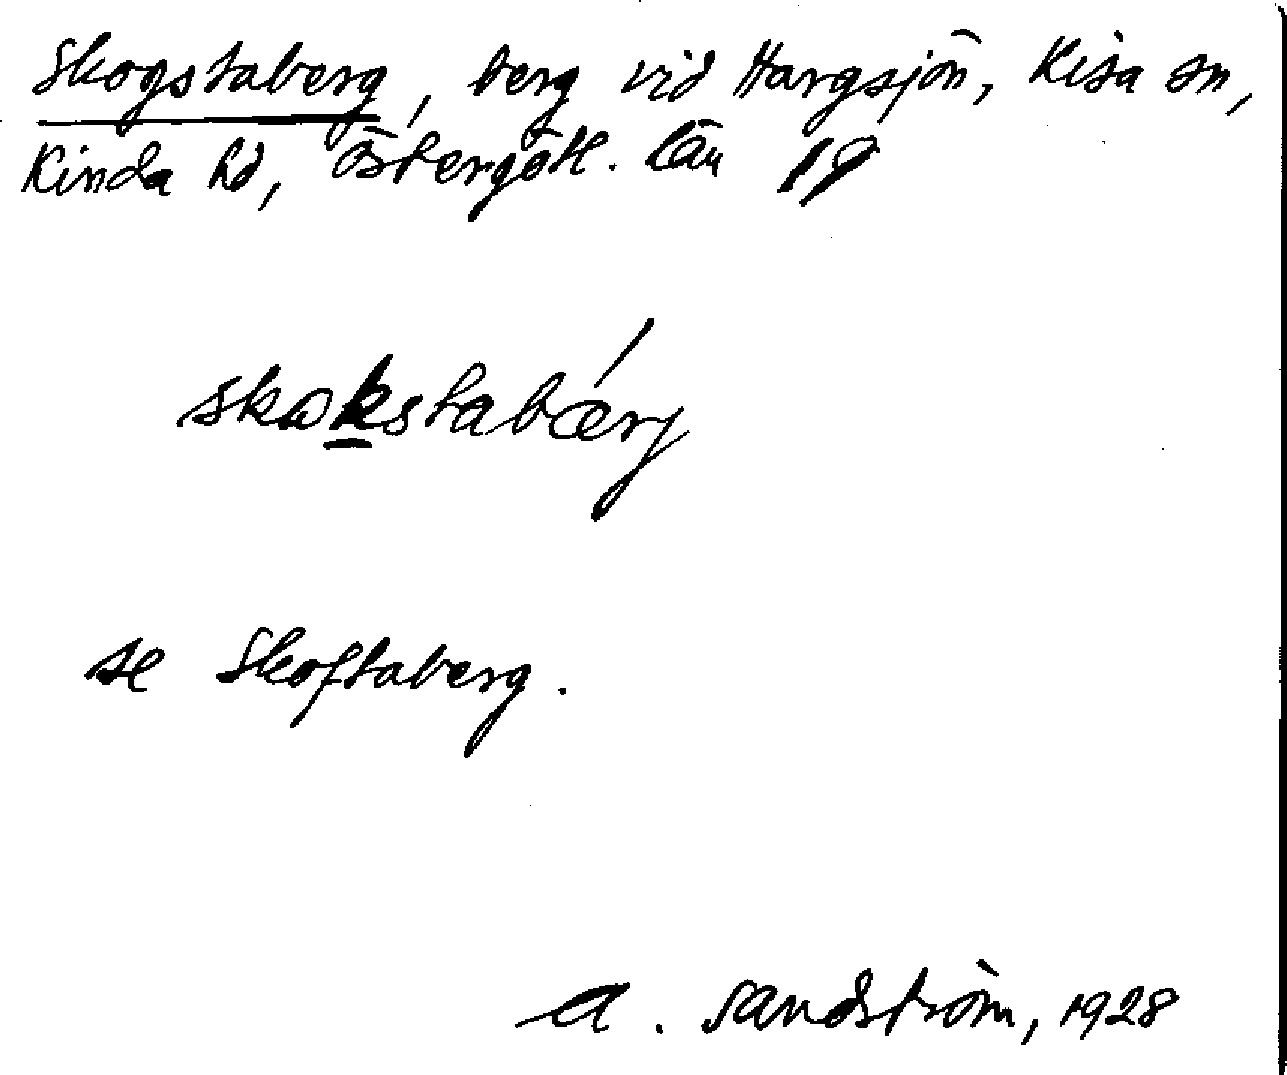 Skogstaberg, berg vid Hargsjön, Kisa sn,
Kinda hd, Östergötl. län 19
skɷkstabærj
se Skoftaberg.
A. Sandström, 1928